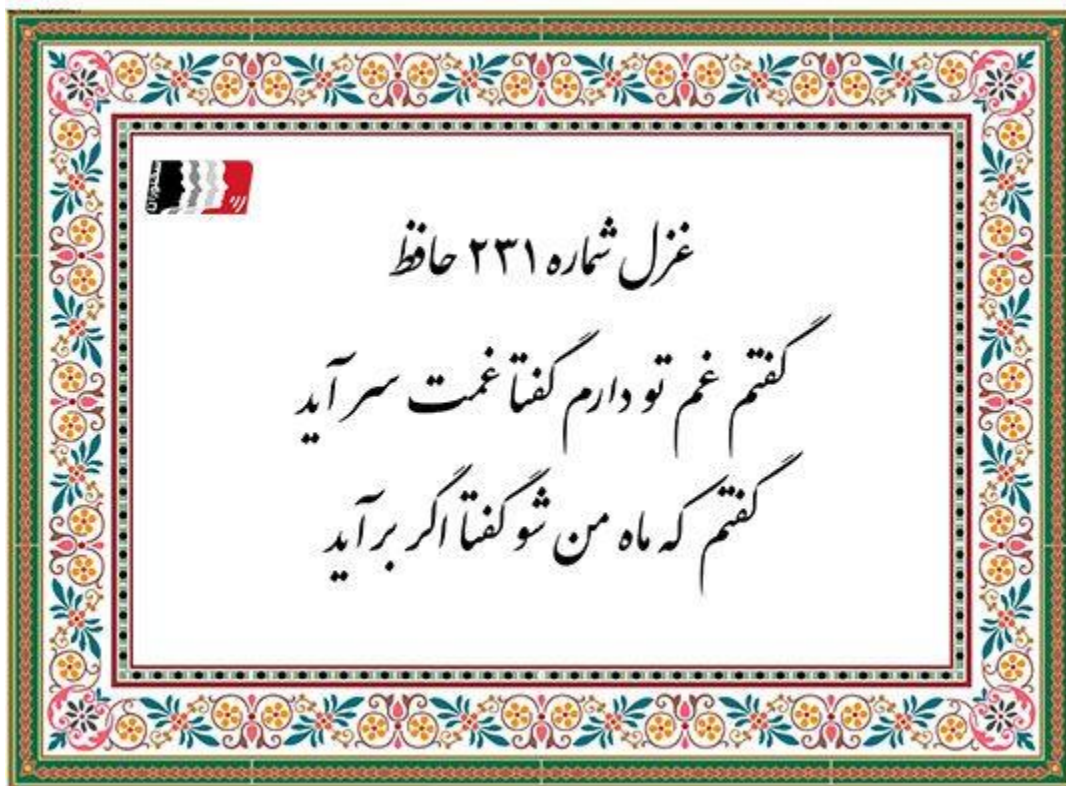 غزل شماره ۲۳۱ حافظ
گفتم غم تو دارم گفتا غمت سر آید
گفتم که ماه من شو گفتا اگر برآید